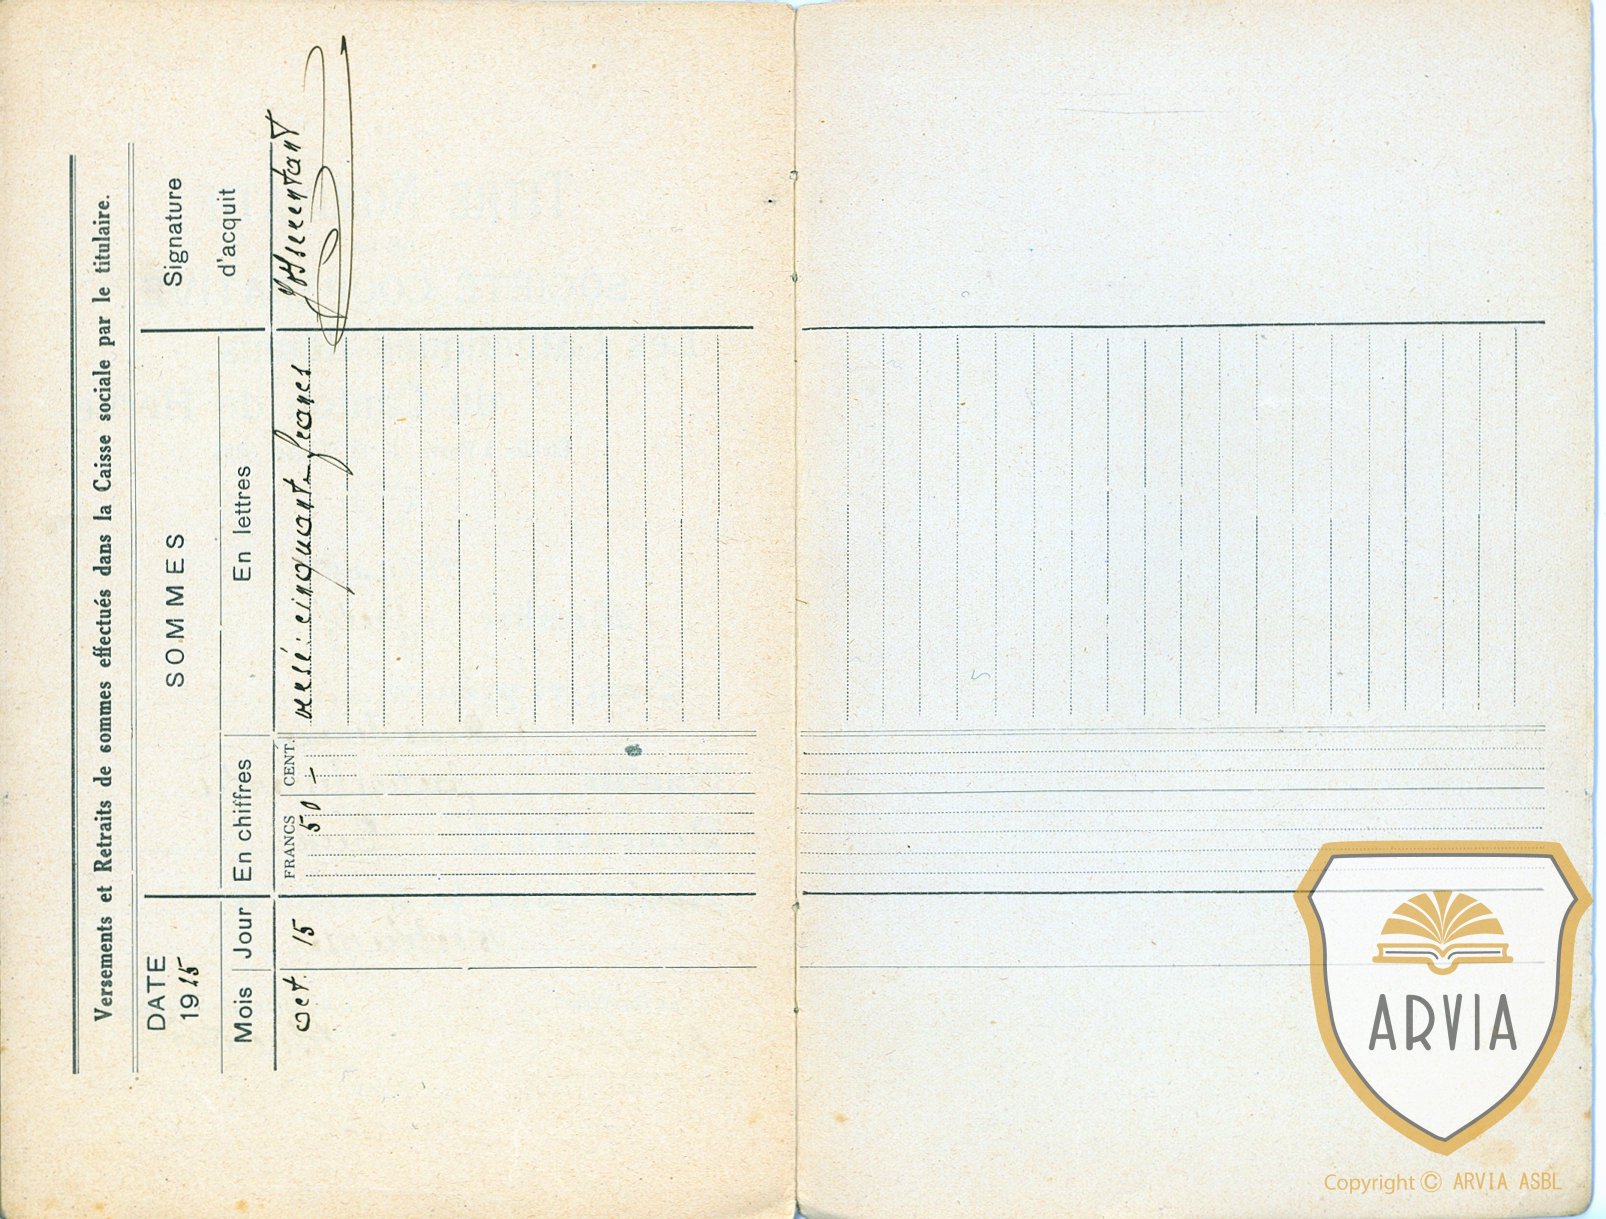 Versements et Retraits de sommes effectués dans la Caisse sociale par le titulaire.
DATE
1915
SOMMES
Signature
d'acquit
Mois
Jour
En chiffres
En lettres
FRANCS
CENT.
oct. 15 50 — versé: cinquant francs
ARVIA
Copyright © ARVIA ASBL